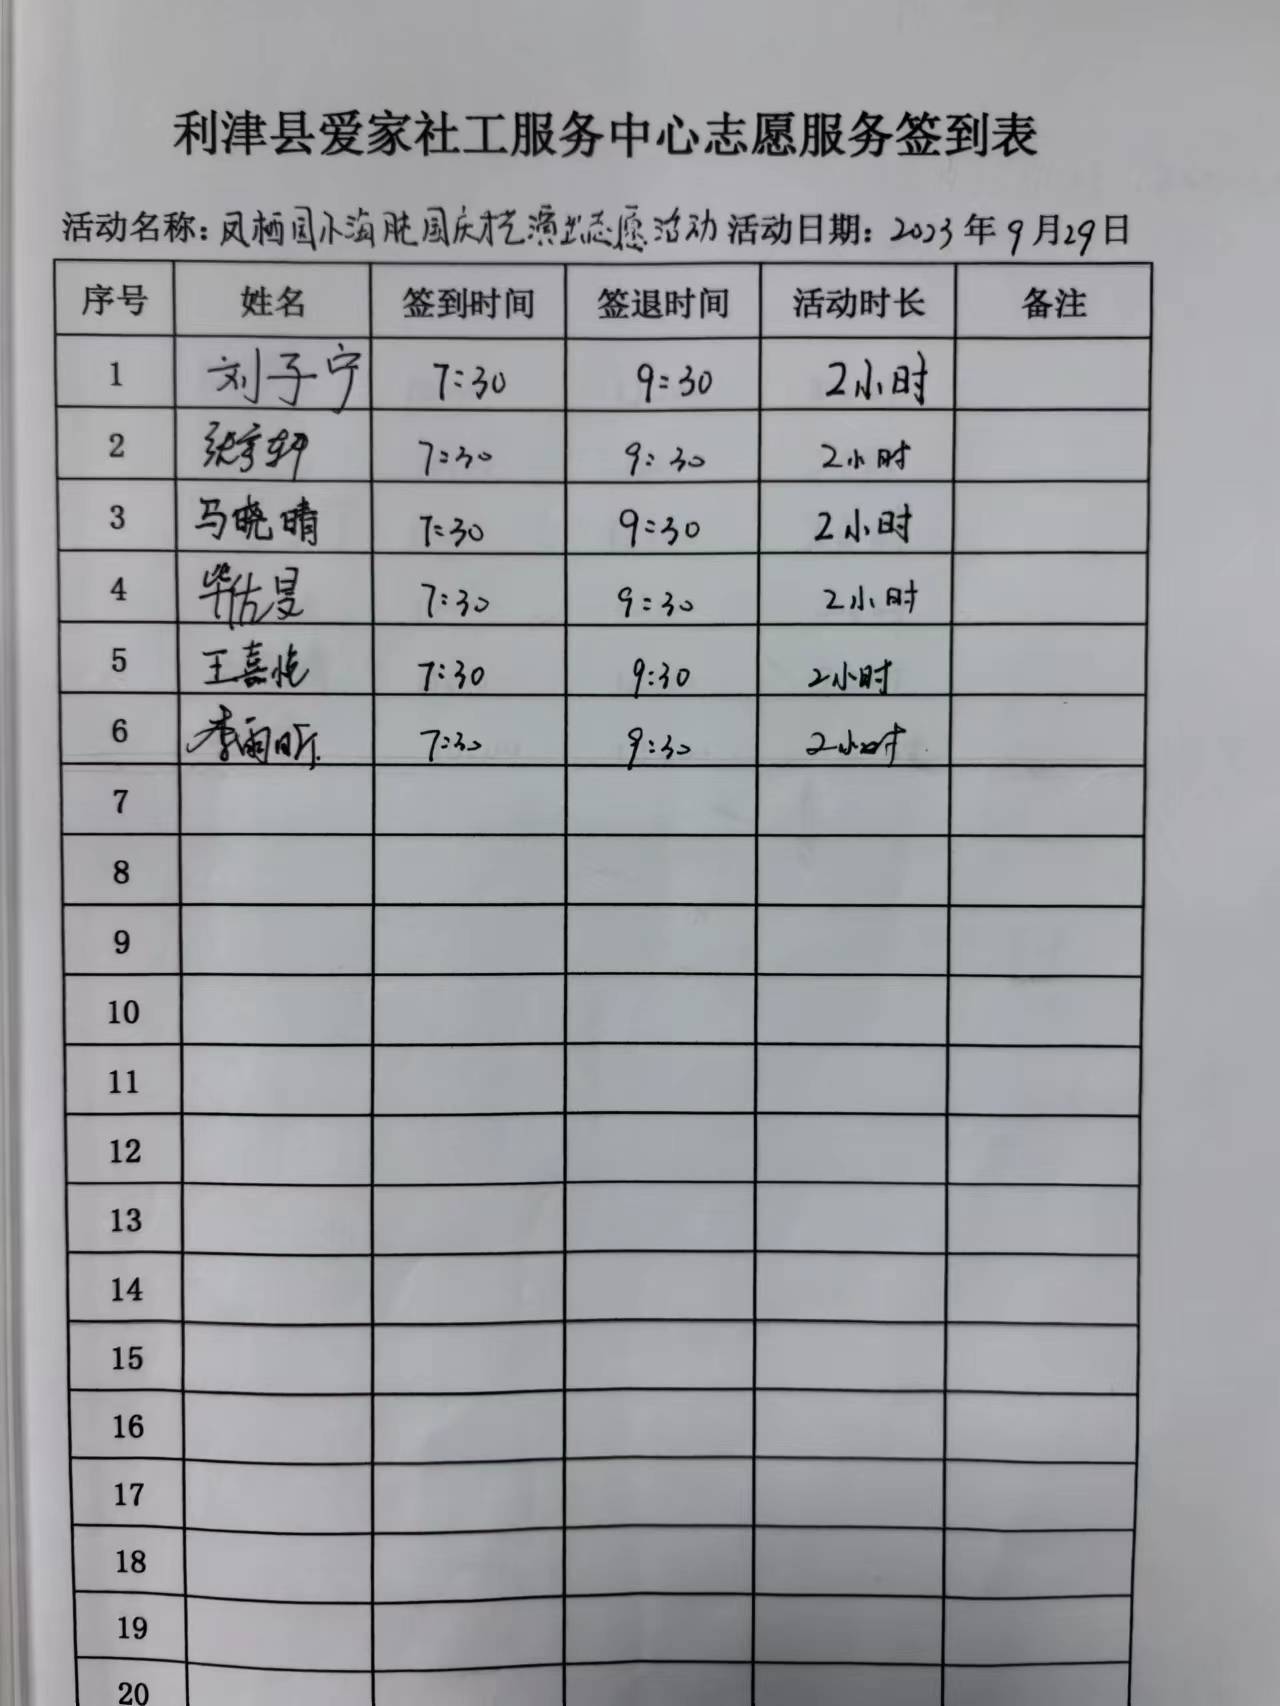 利津县爱家社工服务中心志愿服务签到表
活动名称：凤栖国庆才艺演出志愿活动 活动日期：2023年9月29日
序号 姓名 签到时间 签退时间 活动时长 备注
1 刘子宁 7:30 9:30 2小时
2 张宇轩 7:30 9:30 2小时
3 马晓晴 7:30 9:30 2小时
4 毕佑旻 7:30 9:30 2小时
5 王嘉悦 7:30 9:30 2小时
6 李雨昕 7:30 9:30 2小时
7
8
9
10
11
12
13
14
15
16
17
18
19
20